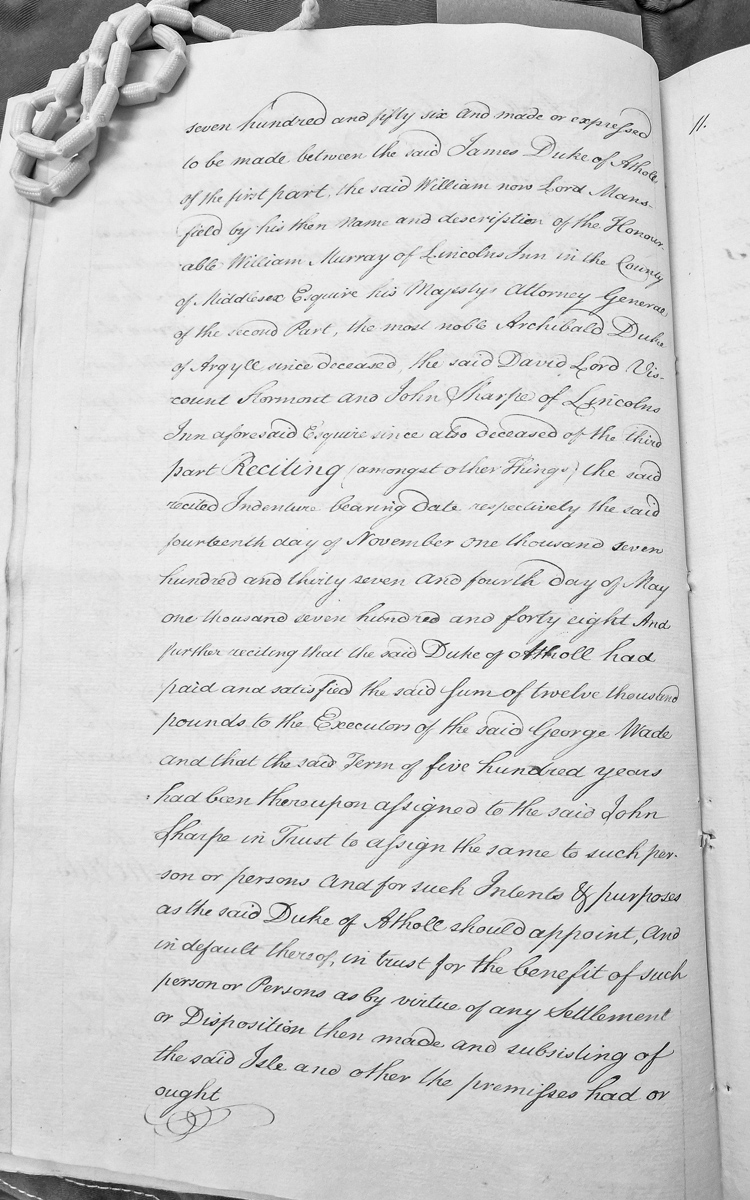 seven hundred and fifty six and made or expressed
to be made between the said James Duke of Atholl
of the first part, the said William now Lord Mans-
field by his then Name and description of the Honour-
able William Murray of Lincolns Inn in the County
of Middlesex Esquire his Majestys Attorney General
of the second Part, the most noble Archibald Duke
of Argyll since deceased, the said David Lord Vis-
count Stormont and John Sharpe of Lincolns
Inn aforesaid Esquire since also deceased of the third
part Reciting (amongst other Things) the said
recited Indenture bearing Date respectively the said
fourteenth day of November one thousand seven
hundred and thirty seven and fourth day of May
one thousand seven hundred and forty eight And
further reciting that the said Duke of Atholl had
paid and satisfied the said sum of twelve thousand
pounds to the Executors of the said George Wade
and that the said Term of five hundred years
had been thereupon assigned to the said John
Sharpe in Trust to assign the same to such per-
son or persons and for such Intents & purposes
as the said Duke of Atholl should appoint, and
in default thereof, in trust for the benefit of such
person or Persons as by virtue of any Settlement
or Disposition then made and subsisting of
the said Isle and other the premisses had or
ought
11.